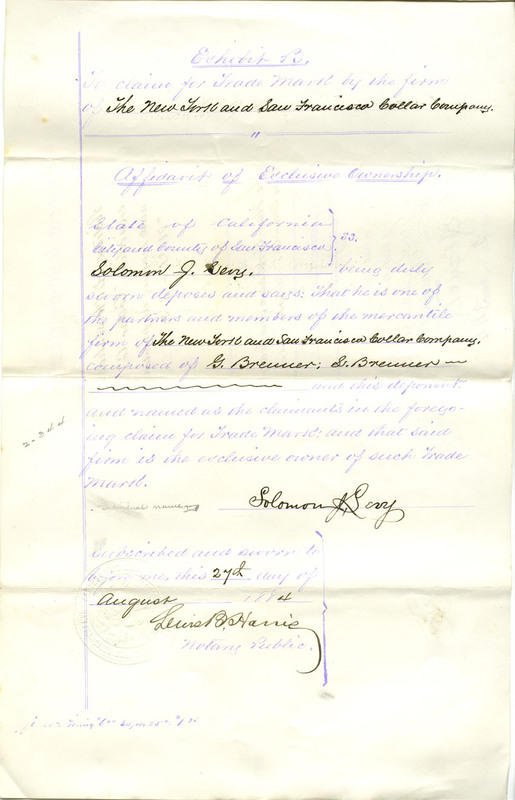 Exhibit B.
To claim for Trade Mark by the firm
of The New York and San Francisco Collar Company.
"
Affidavit of Exclusive Ownership.
State of California
City and County of San Francisco } SS.
Solomon J. Levy. being duly
sworn deposes and says: That he is one of
the partners and members of the mercantile
firm of The New York and San Francisco Collar Company,
composed of G. Brenner; S. Brenner
and this deponent
and named as the claimants in the forego-
ing claim for Trade Mark; and that said
firm is the exclusive owner of such Trade
Mark.
2-344
Solomon J. Levy
Subscribed and sworn to
before me, this 27th day of
August 1884
Lewis B. Harris
Notary Public.